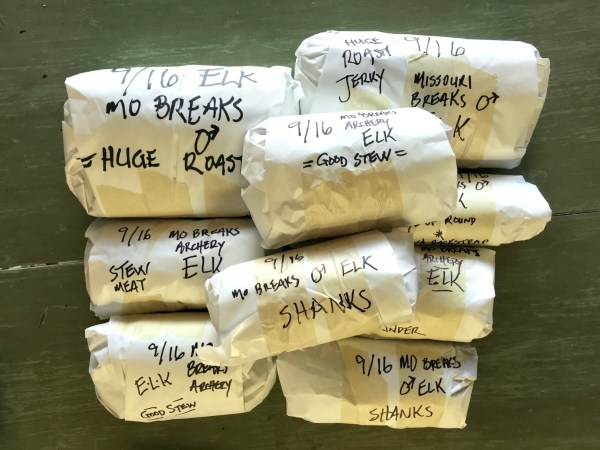 9/16 ELK
MO BREAKS
♂
=HUGE ROAST
HUGE
ROAST
JERKY
9/16
MISSOURI
BREAKS ♂
9/16 MO BREAKS
ARCHERY
ELK
=GOOD STEW=
♂
OF ROUND
9/16 MO BREAKS
ARCHERY
STEW
MEAT
ELK
9/16
MO BREAKS ♂ ELK
SHANKS
ARCHERY
ELK
9/16 MO
BREAKS
E.L.K ARCHERY
GOOD STEW
9/16 MO BREAKS
♂ ELK
SHANKS